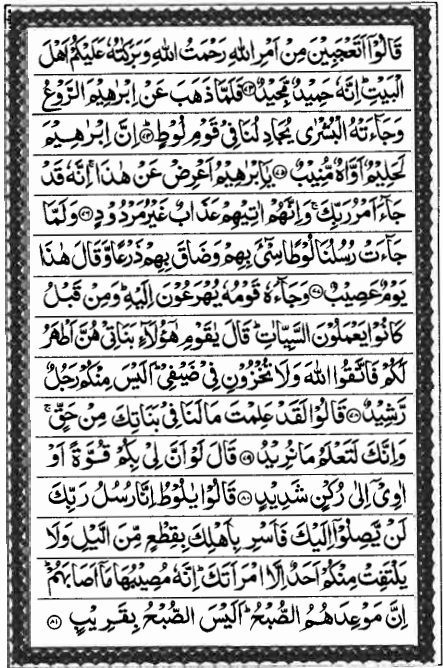 قَالُوْۤا اَتَعْجَبِيْنَ مِنْ اَمْرِ اللّٰهِ رَحْمَتُ اللّٰهِ وَبَرَكٰتُهٗ عَلَيْكُمْ اَهْلَ
الْبَيْتِ ؕ اِنَّهٗ حَمِيْدٌ مَّجِيْدٌ ﴿۷۳﴾ فَلَمَّا ذَهَبَ عَنْ اِبْرٰهِيْمَ الرَّوْعُ
وَجَآءَتْهُ الْبُشْرٰى يُجَادِلُنَا فِيْ قَوْمِ لُوْطٍ ؕ ﴿۷۴﴾ اِنَّ اِبْرٰهِيْمَ
لَحَلِيْمٌ اَوَّاهٌ مُّنِيْبٌ ﴿۷۵﴾ يٰۤاِبْرٰهِيْمُ اَعْرِضْ عَنْ هٰذَا ۚ اِنَّهٗ قَدْ
جَآءَ اَمْرُ رَبِّكَ ۚ وَاِنَّهُمْ اٰتِيْهِمْ عَذَابٌ غَيْرُ مَرْدُوْدٍ ﴿۷۶﴾ وَلَمَّا
جَآءَتْ رُسُلُنَا لُوْطًا سِيْٓءَ بِهِمْ وَضَاقَ بِهِمْ ذَرْعًا وَّقَالَ هٰذَا
يَوْمٌ عَصِيْبٌ ﴿۷۷﴾ وَجَآءَهٗ قَوْمُهٗ يُهْرَعُوْنَ اِلَيْهِ ؕ وَمِنْ قَبْلُ
كَانُوْا يَعْمَلُوْنَ السَّيِّاٰتِ ؕ قَالَ يٰقَوْمِ هٰۤؤُلَآءِ بَنَاتِيْ هُنَّ اَطْهَرُ
لَكُمْ فَاتَّقُوا اللّٰهَ وَلَا تُخْزُوْنِ فِيْ ضَيْفِيْ ؕ اَلَيْسَ مِنْكُمْ رَجُلٌ
رَّشِيْدٌ ﴿۷۸﴾ قَالُوْا لَقَدْ عَلِمْتَ مَا لَنَا فِيْ بَنَاتِكَ مِنْ حَقٍّ ۚ
وَاِنَّكَ لَتَعْلَمُ مَا نُرِيْدُ ﴿۷۹﴾ قَالَ لَوْ اَنَّ لِيْ بِكُمْ قُوَّةً اَوْ
اٰوِيْۤ اِلٰى رُكْنٍ شَدِيْدٍ ﴿۸۰﴾ قَالُوْا يٰلُوْطُ اِنَّا رُسُلُ رَبِّكَ
لَنْ يَّصِلُوْۤا اِلَيْكَ فَاَسْرِ بِاَهْلِكَ بِقِطْعٍ مِّنَ الَّيْلِ وَلَا
يَلْتَفِتْ مِنْكُمْ اَحَدٌ اِلَّا امْرَاَتَكَ ؕ اِنَّهٗ مُصِيْبُهَا مَاۤ اَصَابَهُمْ ؕ
اِنَّ مَوْعِدَهُمُ الصُّبْحُ ؕ اَلَيْسَ الصُّبْحُ بِقَرِيْبٍ ﴿۸۱﴾